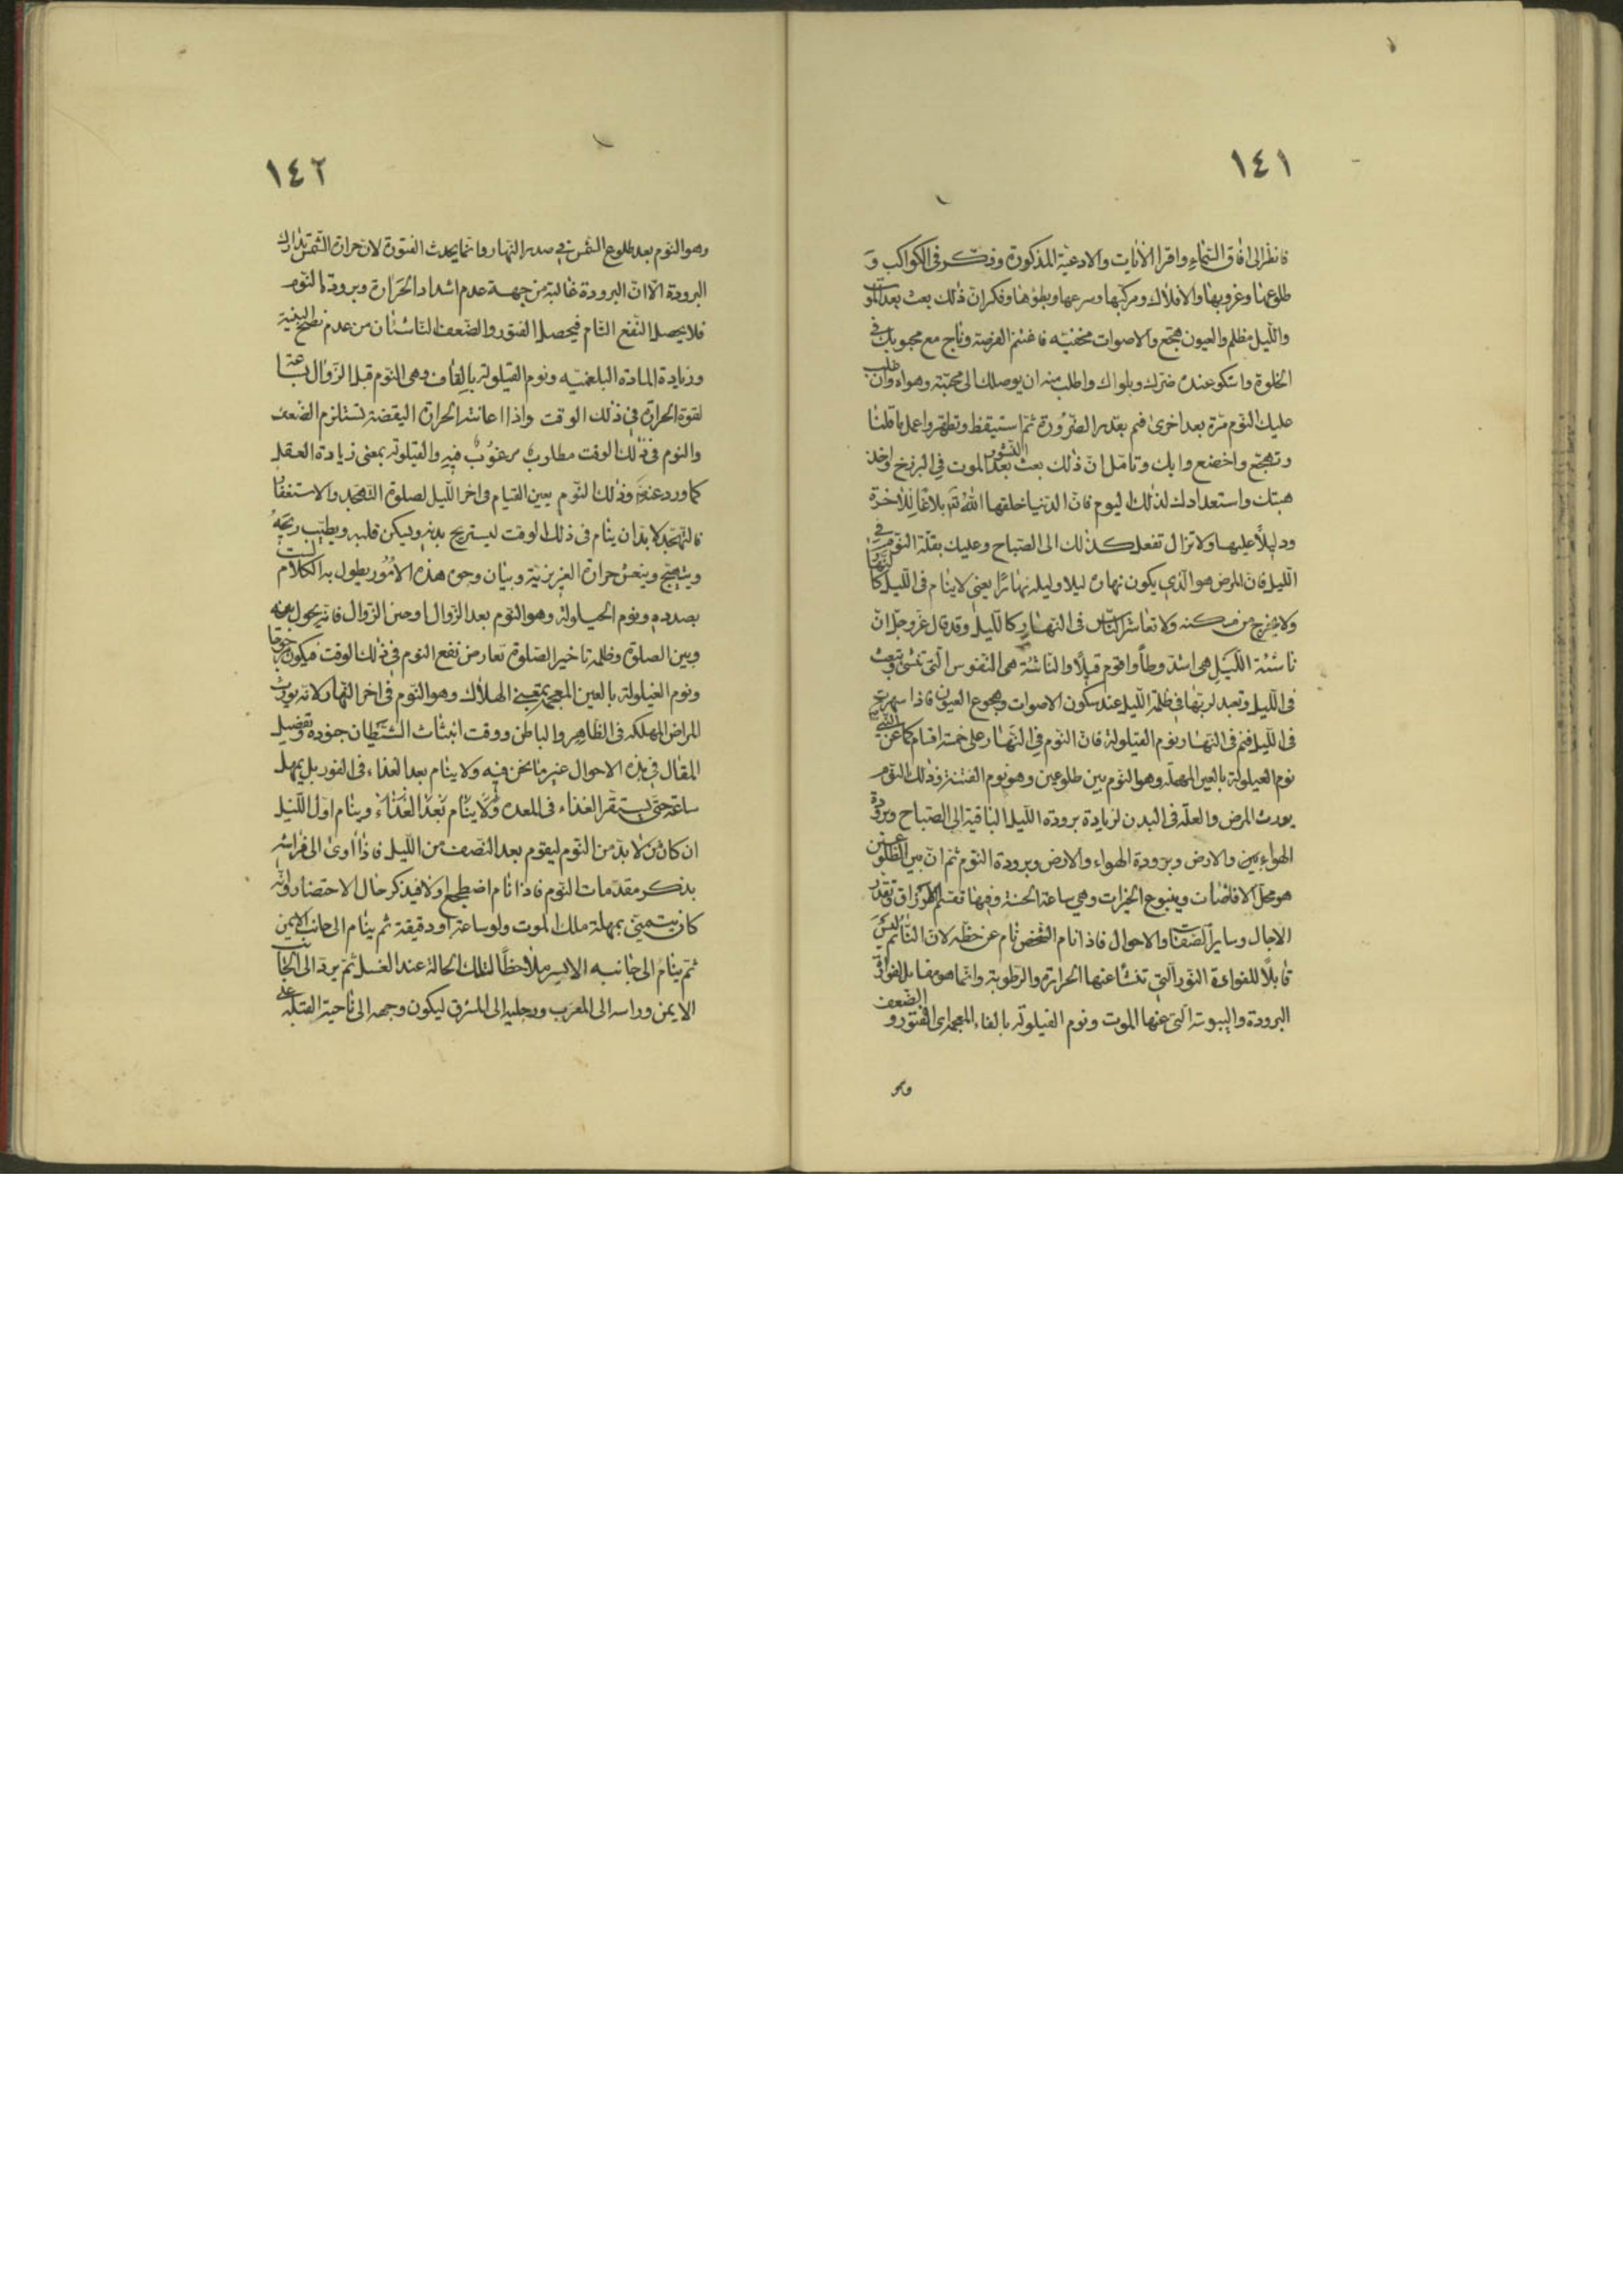 ١٤١
فانظر الى افاق السماء واقرا الايات والادعية المذكورة وفكّر فى الكواكب و
طلوعها وغروبها والافلاك ومركبها وسرعها وبطؤها وفكر ان ذلك بعث بعد الموت
والليل مظلم والعيون هجّع والاصوات مخفتيه فاغتنم الفرصة وناج مع محبوبك فى
الخلوة واشكو عنده ضرّك وبلواك واطلب منه ان يوصلك الى محبته وهواه وان غلب
عليك النوم مرّة بعد اخرى فنم بقدر الضرورة ثم استيقظ وتطهر واعمل ما قلنا
وتهجّع واخضع وابك وتامل ان ذلك بعث النشور بعد الموت فى البرزخ وخذ
هبتك واستعدادك لذلك اليوم فان الدنيا خلقها الله تم بلاغا للاخرة
ودليلاً عليها ولا تزال تفعل كذلك الى الصباح وعليك بقلة النوم فى
الليل فان المرض هو الذى يكون نهاره ليلا وليله نهارًا يعنى لا ينام فى الليل كالنهار
ولا يخرج من مسكنه ولا تعاشر الناس فى النهار كالليل وقد قال عز وجل ان
ناشئة الليل هى اشدّ وطأً واقوم قيلًا والناشئة هى النفوس التى تمشى وتبعث
فى الليل وتعبد لربّها فى ظلمة الليل عند سكون الاصوات وهجوع العيون فاذا سهرت
فى الليل فنم فى النهار نوم القيلولة فان النوم فى النهار على خمسة اقسام كما عن النبى
نوم العيلولة بالعين المهمله وهو النوم بين طلوعين وهو نوم الفتنة وذلك النوم
يورث المرض والعلّة فى البدن لزيادة برودة الليل الباقية الى الصباح وبرودة
الهواء بين والارض وبرودة الهواء والارض وبرودة النوم ثم ان بين الطلوعين
هو محل الافاضات وينبوع الخيرات وهى ساعة الجنة وفيها تقسم الارزاق وتقدر
الاجال وساير الصفات والاحوال فاذا نام الشخص نام عن حظه لان النائم ليس
قابلاً للفوارة النور التى تنشأ عنها الحرارة والرطوبة وانما هو مقابل لفوارة
البرودة واليبوسة التى عنها الموت ونوم الفيلولة بالفاء المعجمة اى الفتور و الضعف
وهو
١٤٢
وهو النوم بعد طلوع الشمس فى صدر النهار وانما يحدث الفتور لان حرارة الشمس تدارك
البرودة الا ان البرودة غالبة من جهة عدم اشتداد الحَرارة وبرودة النوم
فلا يحصل النفع التام فيحصل الفتور والضعف الناشئان من عدم نضح البنية
وزيادة المادة البلغميه ونوم القيلولة بالقاف وهى النوم قبل الزوال بساعة
لقوة الحرارة فى ذلك الوقت واذا اعانته الحرارة اليقضة تستلزم الضعف
والنوم فى ذلك الوقت مطلوب مرغوب فيه والقيلوله بمعنى زيادة العقل
كما ورد عنه وذلك النوم يعين القيام فى اخر الليل لصلوة التهجد والاستغفار
فالمتهجّد لا بدّ ان ينام فى ذلك الوقت ليستريح بدنه ويسكن قلبه ويطيب ريحهُ
ويتهيج وينعش حرارة الغريزية وبيان وجوه هذه الامور يطول به الكلام لست
بصدده ونوم الحيلولة وهو النوم بعد الزوال اوحين الزوال فانه يحول بينه
وبين الصلوة وظلمة تاخير الصلوة تعارض نفع النوم فى ذلك الوقت فيكون
ونوم الغيلولة بالغين المعجمة بمعنى الهلاك وهو النوم فى اخر النهار لانه يورث
المراض المهلكة فى الظاهر والباطن ووقت انبثاث الشيطان جنوده وتفصيل
المقال فى هذه الاحوال غير ما نحن فيه ولا ينام بعد الغذاء فى الفور بل يمهل
ساعة حتى يستقر الغذاء فى المعدة ولا ينام بعد الغذاء وينام اول الليل
ان كان لا بدّ من النوم ليقوم بعد النصف من الليل فاذا اوى الى فراشه
يذكر مقدّمات النوم فاذا نام اضطجع اولا فيذكر حال الاحتضار وانه
كان يتمنى بمهلة ملك الموت ولو ساعة او دقيقة ثم ينام الى جانب الايمن
ثم ينام الى جانبه الايسر ملاحظًا لتلك الحالة عند الغسل ثم يرد الى الجانب
الايمن وراسه الى المغرب ورجليه الى المشرق ليكون وجهه الى ناحية القبلة